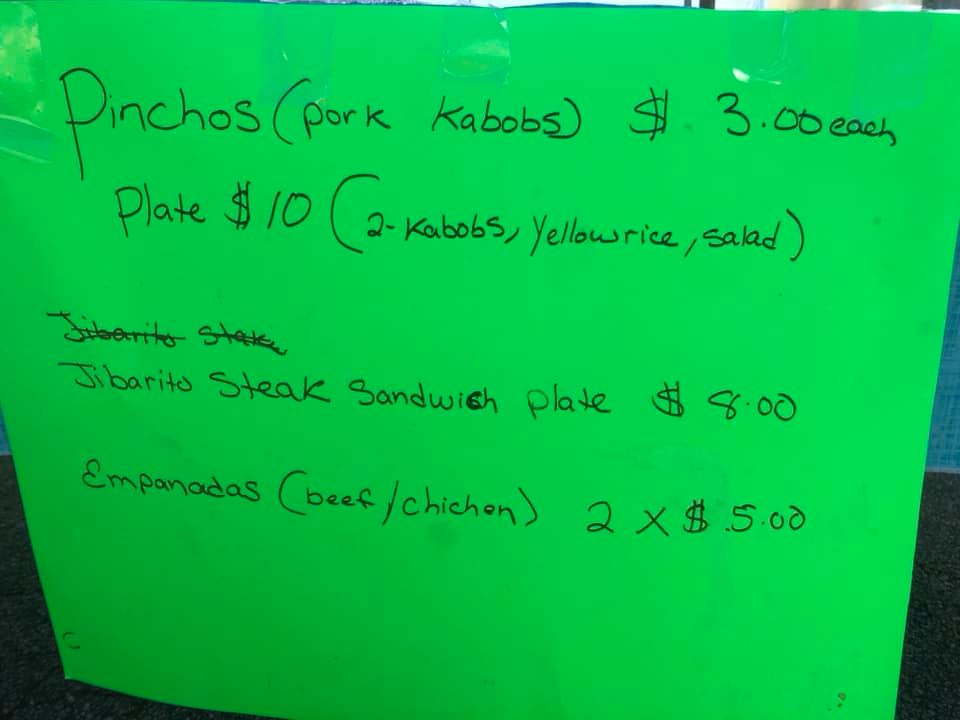 Pinchos (pork Kabobs) $ 3.00 each
Plate $10 (2-Kabobs, Yellow rice, salad)
Jibarito Stake
Jibarito Steak Sandwich plate $ 8.00
Empanadas (beef/chichen) 2 X $ 5.00